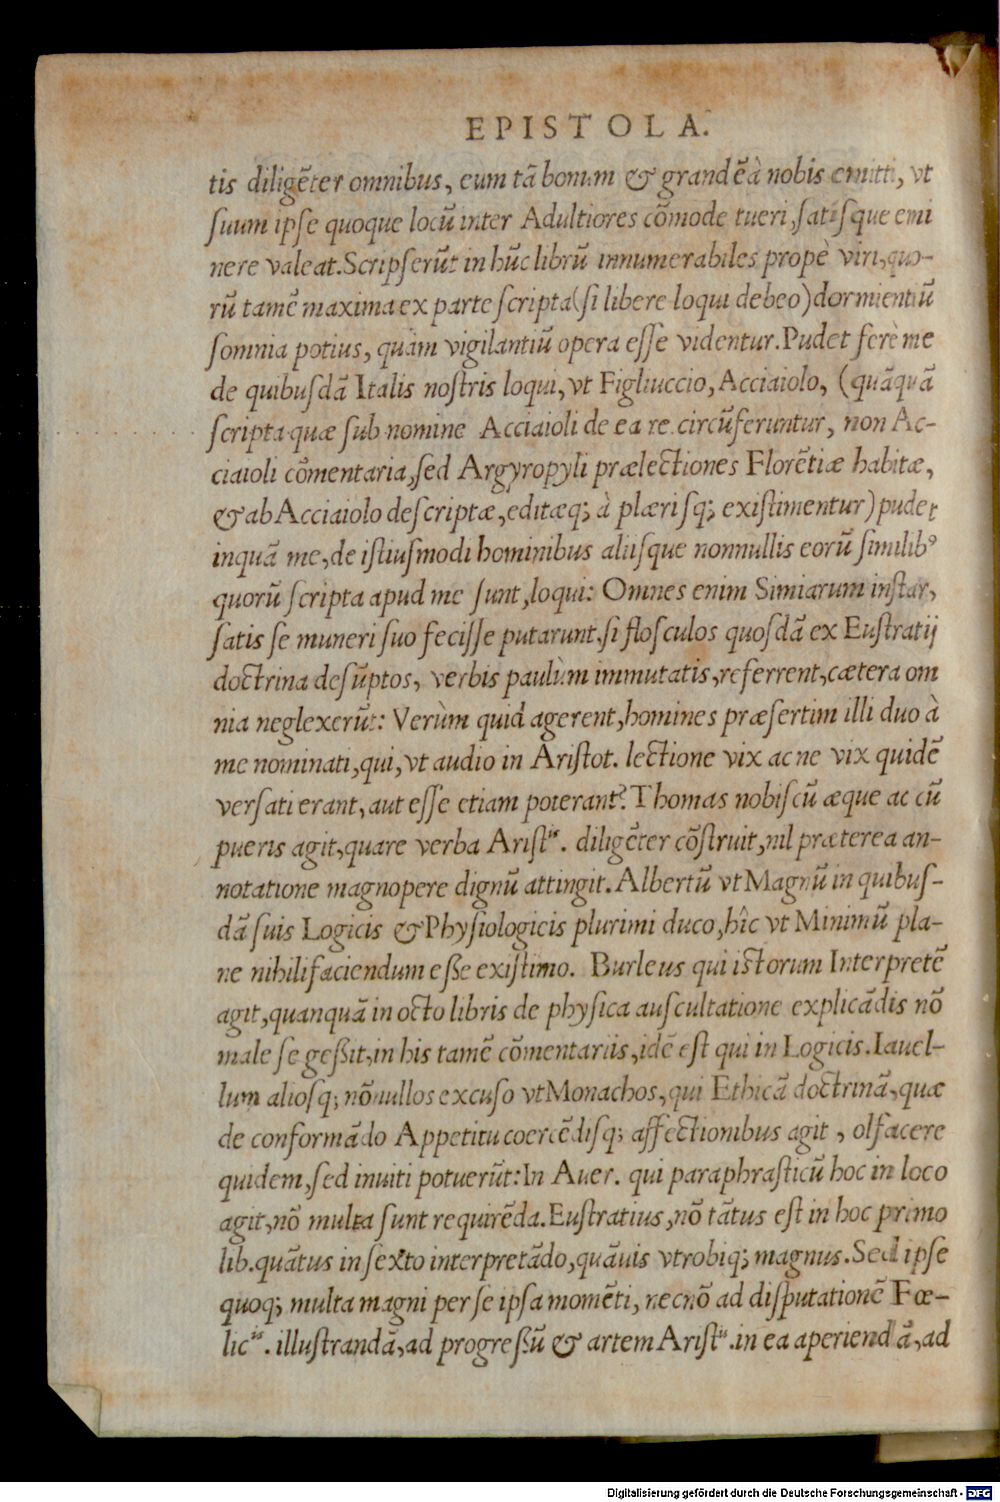 EPISTOLA.
tis diligẽter omnibus, eum tã bonum & grandẽ à nobis emitti, vt
ſuum ipſe quoque locũ inter Adultiores cõmode tueri, ſatiſque emi
nere valeat. Scripſerũt in hũc librũ innumerabiles propè viri, quo-
rũ tamẽ maxima ex parte ſcripta (ſi libere loqui debeo) dormientiũ
ſomnia potius, quàm vigilantiũ opera eſſe videntur. Pudet ferè me
de quibuſdã Italis noſtris loqui, vt Figliuccio, Acciaiolo, (quãquã
ſcripta quæ ſub nomine Acciaioli de ea re circũferuntur, non Ac-
ciaioli cõmentaria, ſed Argyropyli prælectiones Florẽtiæ habitæ,
& ab Acciaiolo deſcriptæ, editæq; à plæriſq; exiſtimentur) pudet
inquã me, de iſtiuſmodi hominibus aliiſque nonnullis eorũ ſimilibꝰ
quorũ ſcripta apud me ſunt, loqui: Omnes enim Simiarum inſtar,
ſatis ſe muneri ſuo feciſſe putarunt, ſi floſculos quoſdã ex Euſtratij
doctrina deſũptos, verbis paulùm immutatis, referrent, cætera om
nia neglexerũt: Verùm quid agerent, homines præſertim illi duo à
me nominati, qui, vt audio in Ariſtot. lectione vix ac ne vix quidẽ
verſati erant, aut eſſe etiam poterant? Thomas nobiſcũ æque ac cũ
pueris agit, quare verba Ariſtⁱˢ. diligẽter cõſtruit, nil præterea an-
notatione magnopere dignũ attingit. Albertũ vt Magnũ in quibuſ-
dã ſuis Logicis & Phyſiologicis plurimi duco, hîc vt Minimũ pla-
ne nihilifaciendum eße exiſtimo. Burleus qui iſtorum Interpretẽ
agit, quanquã in octo libris de phyſica auſcultatione explicãdis nõ
male ſe geßit, in his tamẽ cõmentariis, idẽ eſt qui in Logicis. Iauel-
lum alioſq; nõnullos excuſo vt Monachos, qui Ethicã doctrinã, quæ
de conformãdo Appetitu coercẽdiſq; affectionibus agit, olfacere
quidem, ſed inuiti potuerũt: In Auer. qui paraphraſticũ hoc in loco
agit, nõ multa ſunt requirẽda. Euſtratius, nõ tãtus eſt in hoc primo
lib. quãtus in ſexto interpretãdo, quãuis vtrobiq; magnus. Sed ipſe
quoq; multa magni per ſe ipſa momẽti, necnõ ad diſputationẽ Fœ-
licⁱˢ. illuſtrandã, ad progreßũ & artem Ariſtⁱˢ. in ea aperiendã, ad
Digitalisierung gefördert durch die Deutsche Forschungsgemeinschaft - DFG